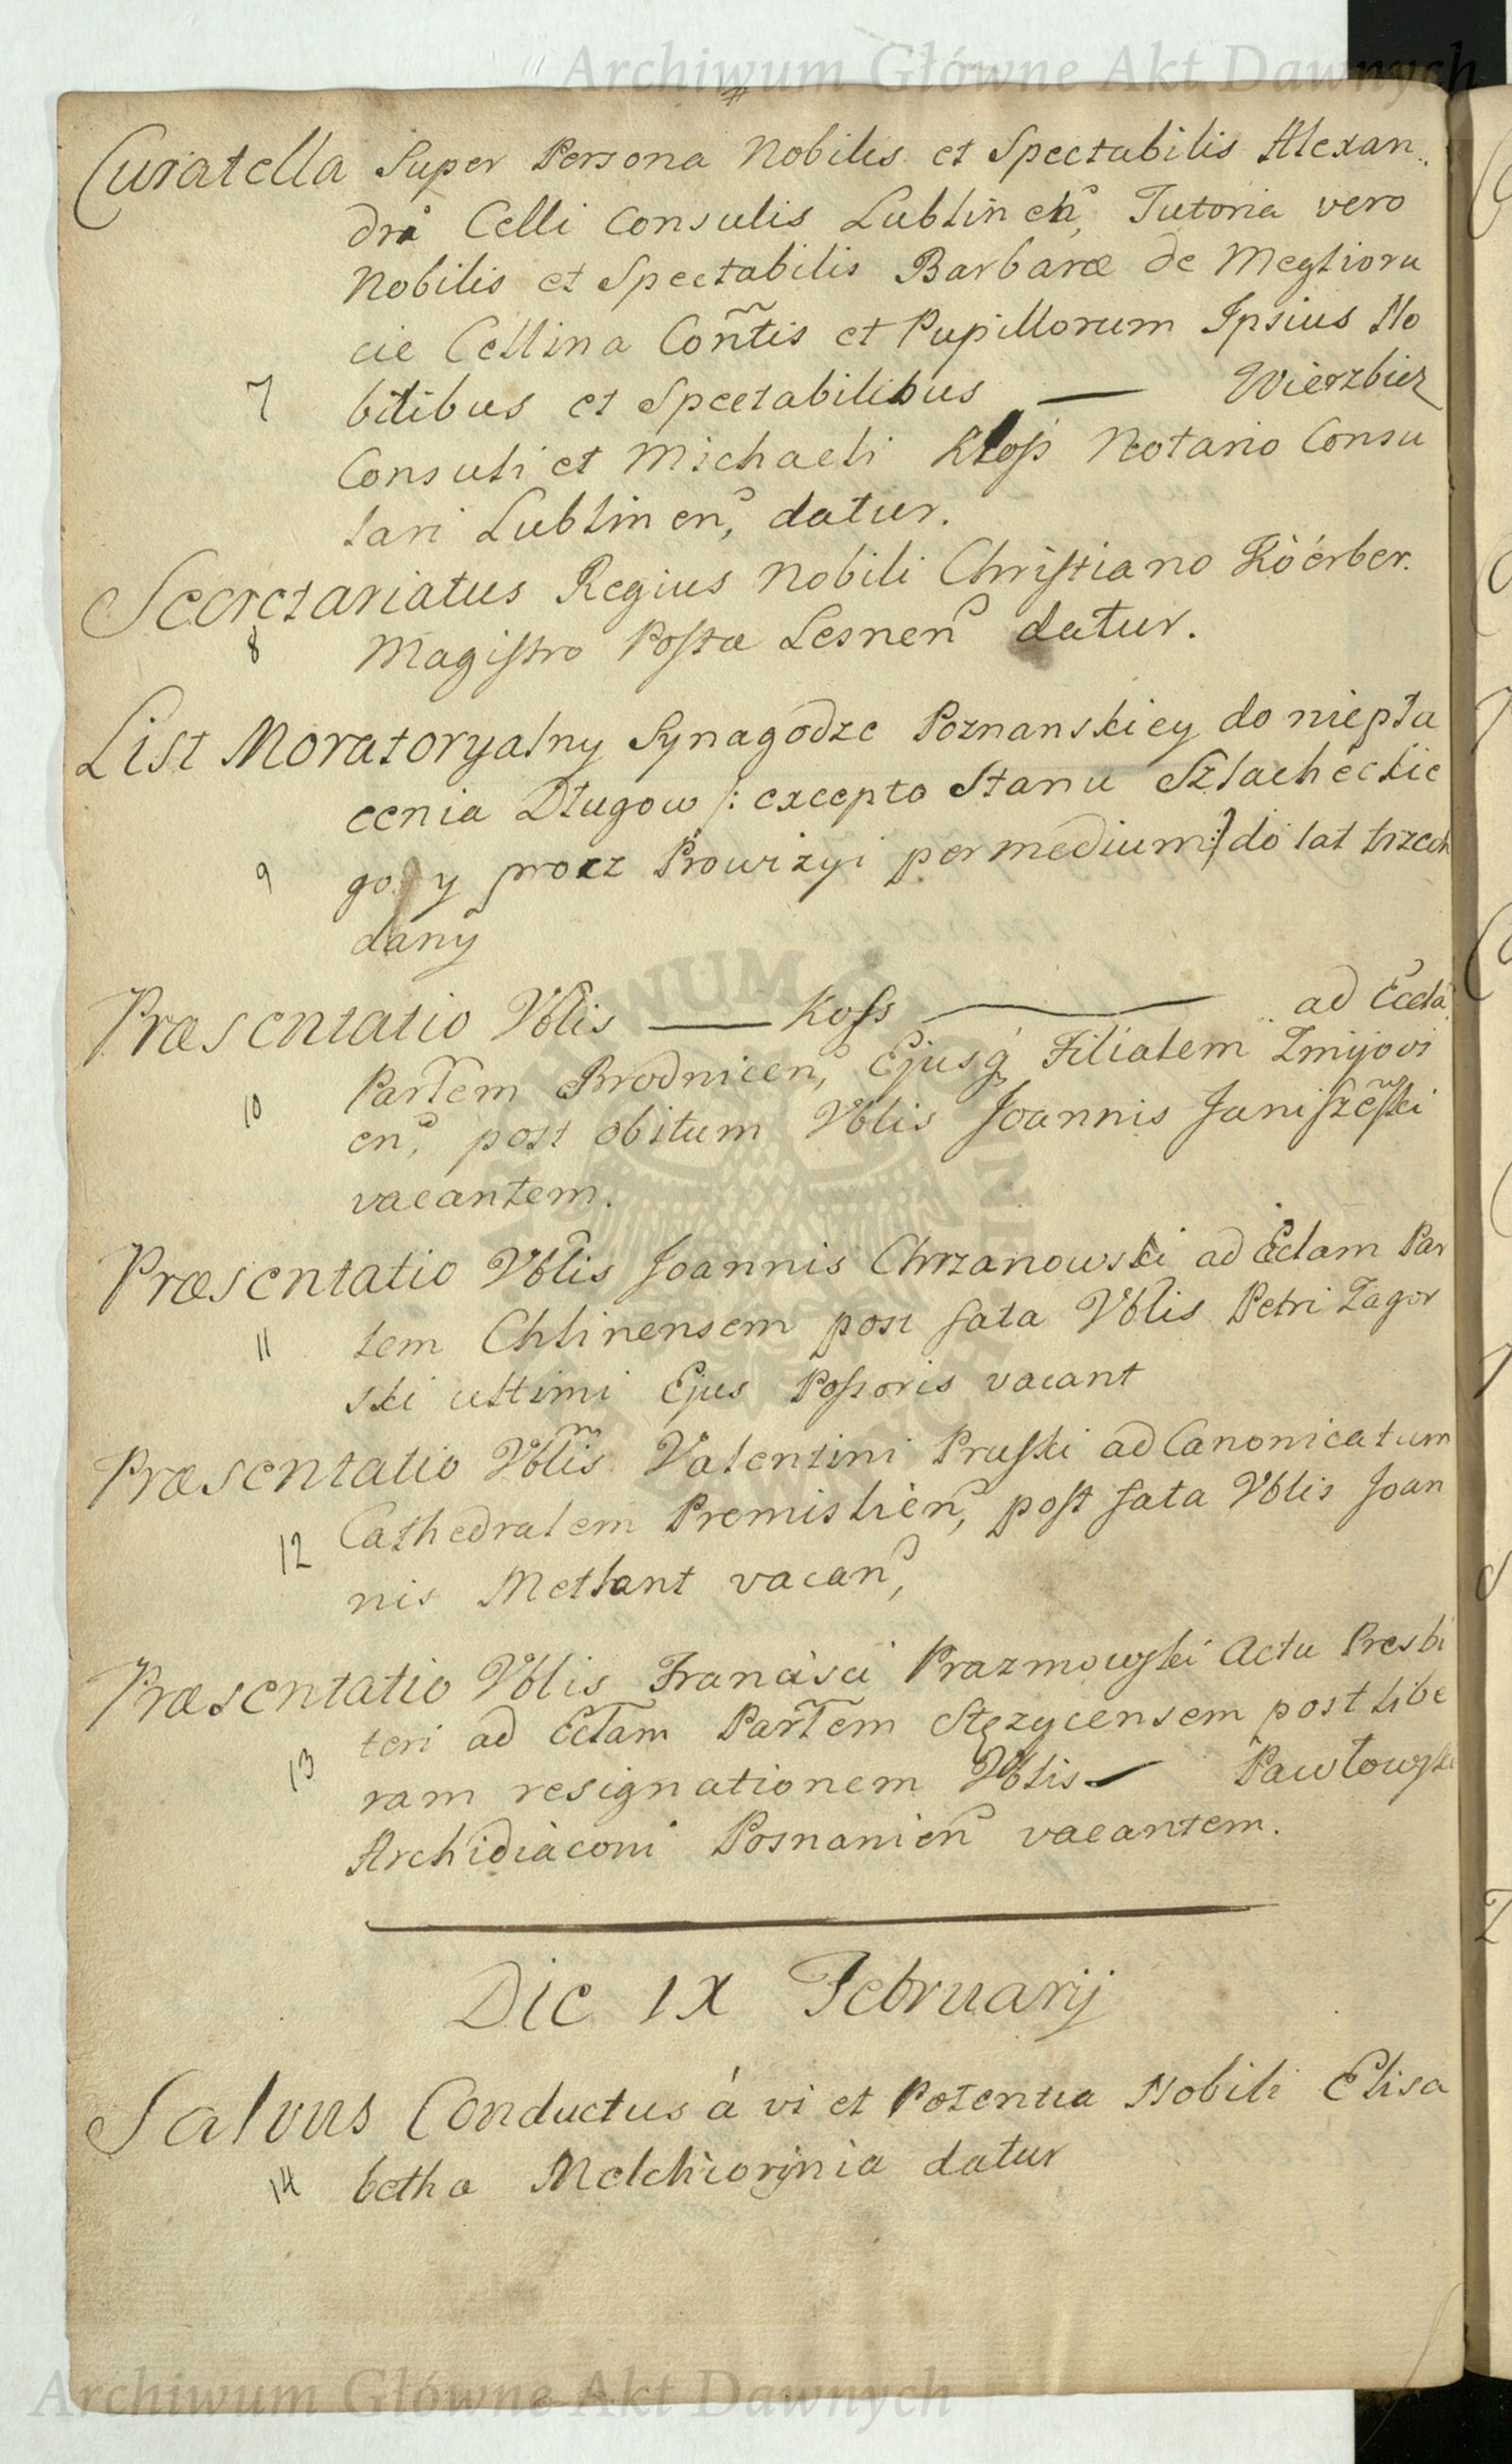 Archiwum Główne Akt Dawnych
Curatella Super Persona Nobilis et Spectabilis Alexan
dri Celli Consulis Lublinen, Tutoria vero
Nobilis et Spectabilis Barbaræ de Meglioru
cie Cellina Conñtis et Pupillorum Ipsius No
7 bilibus et Spectabilibus — Wierzbicz
Consuli et Michaeli Kloss Notario Consu
lari Lublinen, datur.
Secretariatus Regius Nobili Christiano Köerber.
8 Magistro Postæ Lesnen datur.
List Moratoryalny Synagodze Poznanskiey do niepła
cenia Długow /: excepto Stanu Szlacheckie
9 go, y procz Prowizyi per medium :/ do lat trzech
dany
Præsentatio Vblis — Koss — ad Eccla
10 Partem Brodnicen, Ejusq Filialem Zmijovi
en, post obitum Vblis Joannis Janiszeski
vacantem.
Præsentatio Vblis Joannis Chrzanowski ad Eclam Par
11 tem Chlinensem post fata Vblis Petri Zagor
ski ultimi Ejus Possoris vacant
Præsentatio Vblis Valentini Pruski ad Canonicatum
12 Cathedralem Premislien, post fata Vblis Joan
nis Metlant vacan,
Præsentatio Vblis Francisci Prazmowski Actu Presbi
teri ad Eclam Partem Stęzycensem post libe
13 ram resignationem Vblis — Pawłowski
Archidiaconi Posnanien vacantem.
Die IX Februarij
Salvus Conductus á vi et Potentia Nobili Elisa
14 betha Melchiorijnia datur
Archiwum Główne Akt Dawnych